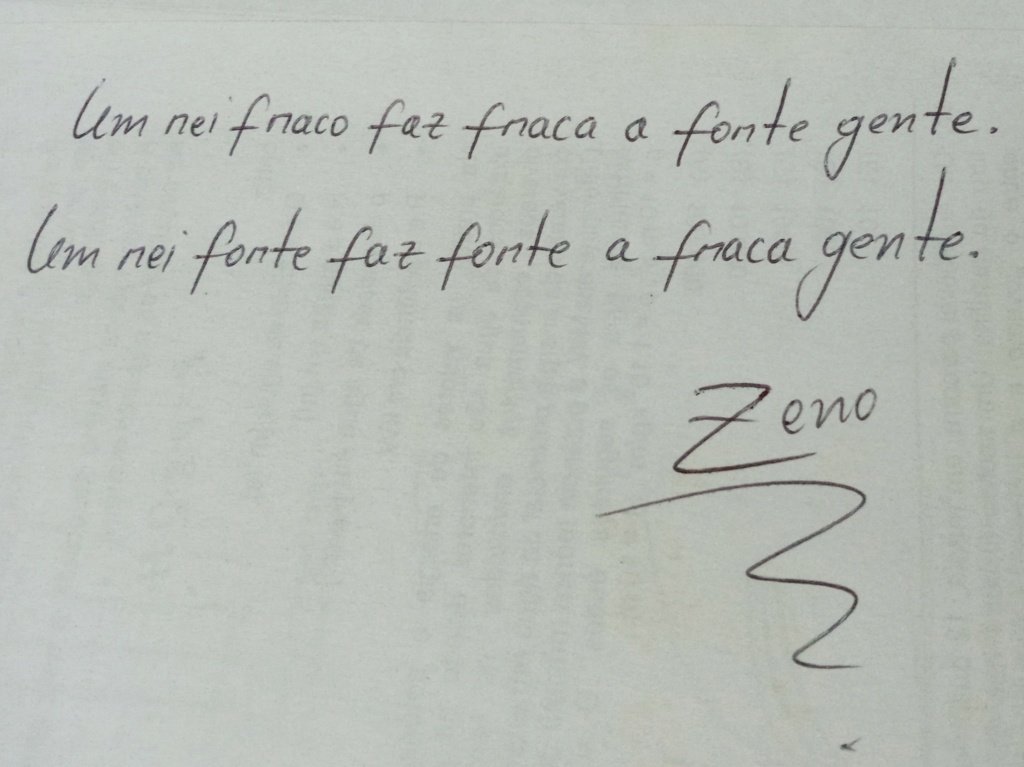 Um rei fraco faz fraca a forte gente.
Um rei forte faz forte a fraca gente.
Zeno